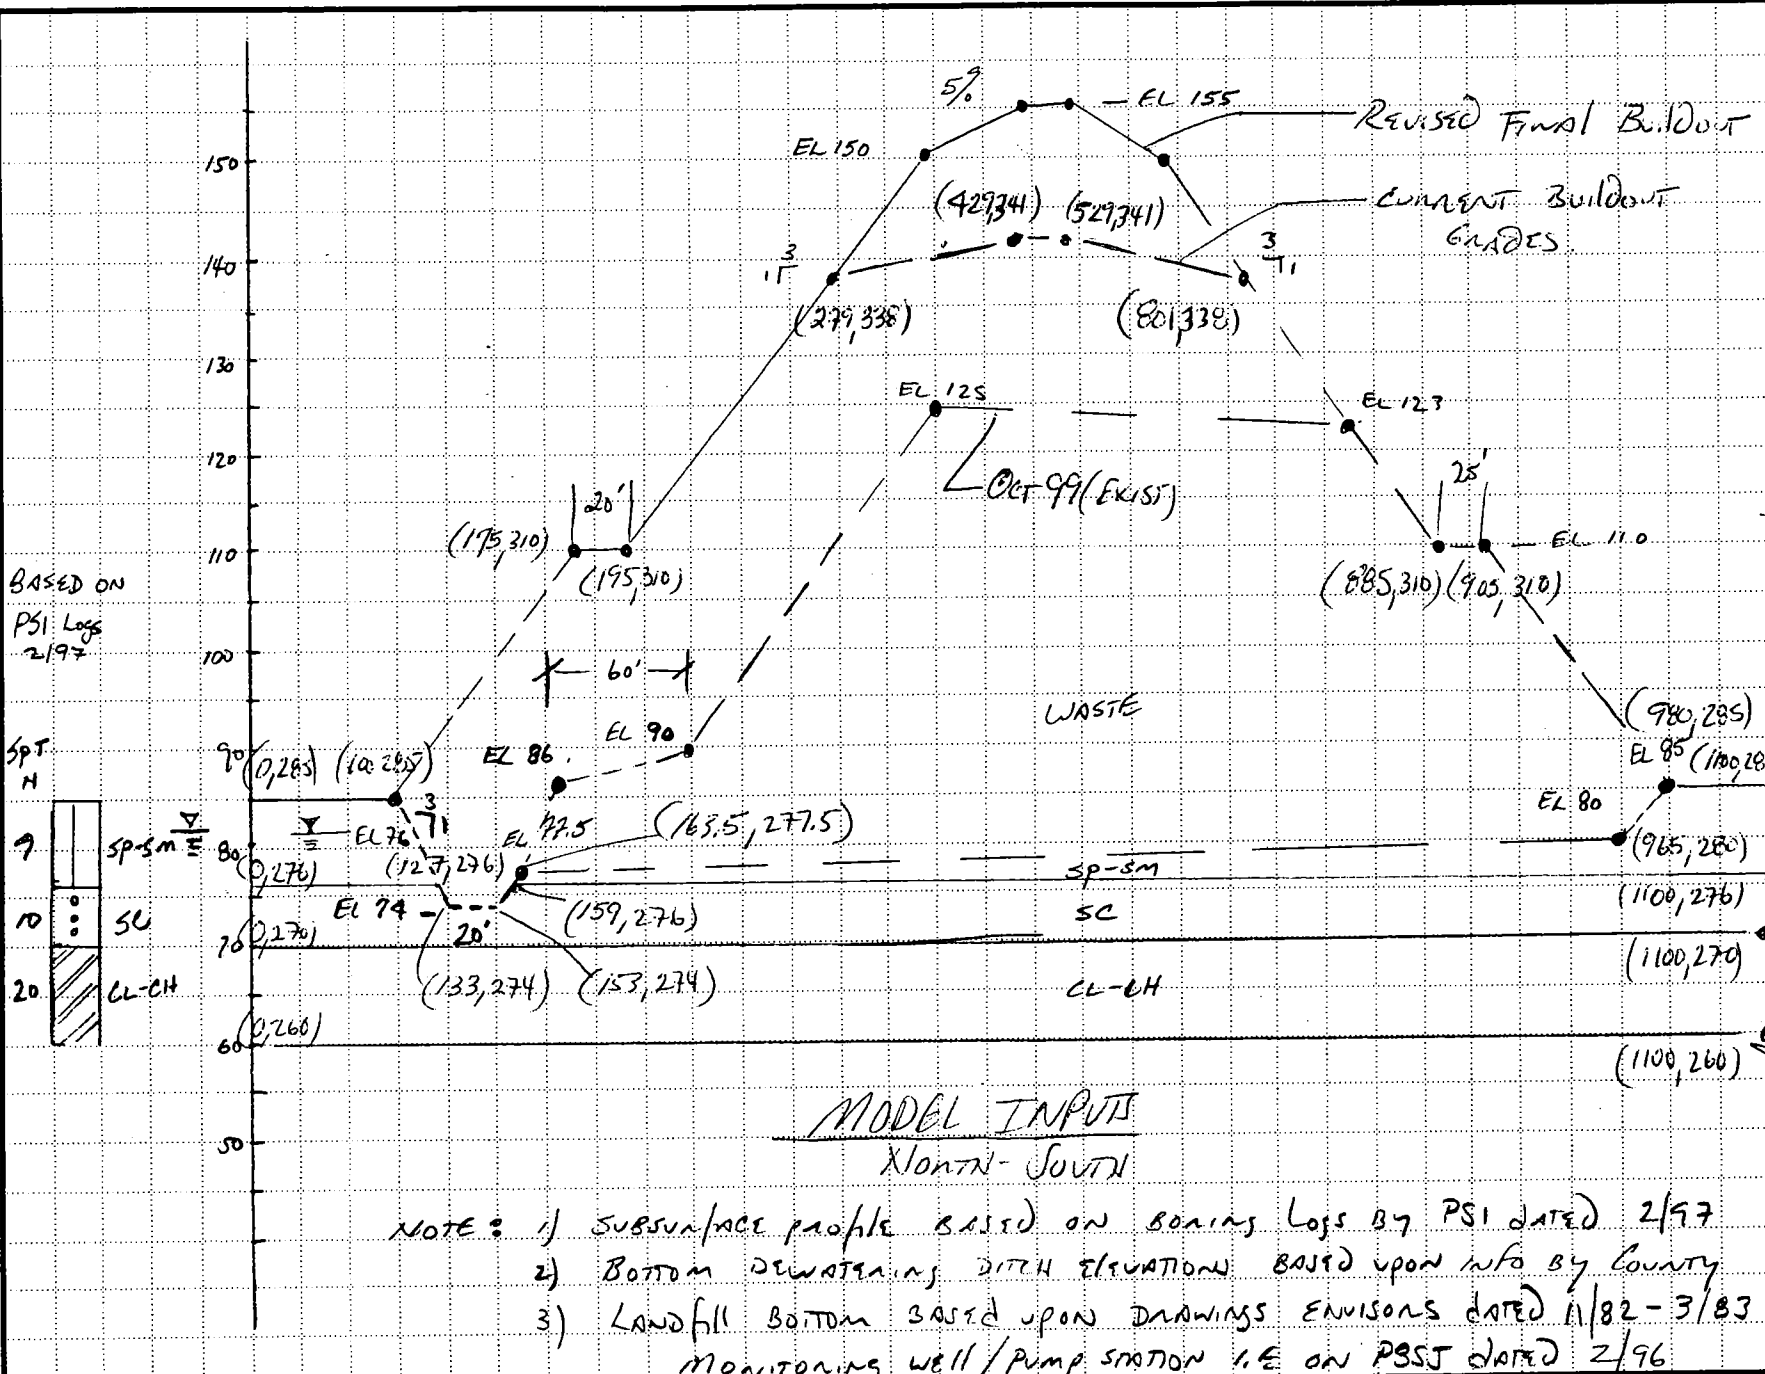 5%
EL 155
REVISED FINAL BUILDOUT
EL 150
150
(429,341) (529,341)
CURRENT BUILDOUT
GRADES
140
3
1
3
1
(279,338)
(801,338)
130
EL 125
EL 123
120
OCT 99 (EXIST)
20'
25'
(175,310)
110
(195,310)
EL 110
(885,310) (905,310)
BASED ON
PSI Logs
2/97
100
60'
WASTE
(980,285)
EL 90
EL 86
EL 85
(1100,28
SPT
N
90
(0,285) (100,285)
EL 80
3
1
EL 76
EL 77.5
(163.5, 277.5)
9
SP-SM
80
(0,276)
(127,276)
SP-SM
(965,280)
EL 74
(159,276)
SC
(1100,276)
10
SC
70
(0,270)
20'
(1100,270)
20
CL-CH
(133,274)
(153,274)
CL-CH
(0,260)
60
(1100,260)
MODEL INPUTS
50
NORTH-SOUTH
NOTE: 1) SUBSURFACE profile BASED ON BORING LOGS BY PSI DATED 2/97
2) BOTTOM DEWATERING DITCH ELEVATIONS BASED UPON INFO BY COUNTY
3) LANDfill BOTTOM BASED UPON DRAWINGS ENVISORS DATED 11/82 - 3/83
MONITORING WELL / PUMP STATION I.E ON PBSJ DATED 2/96